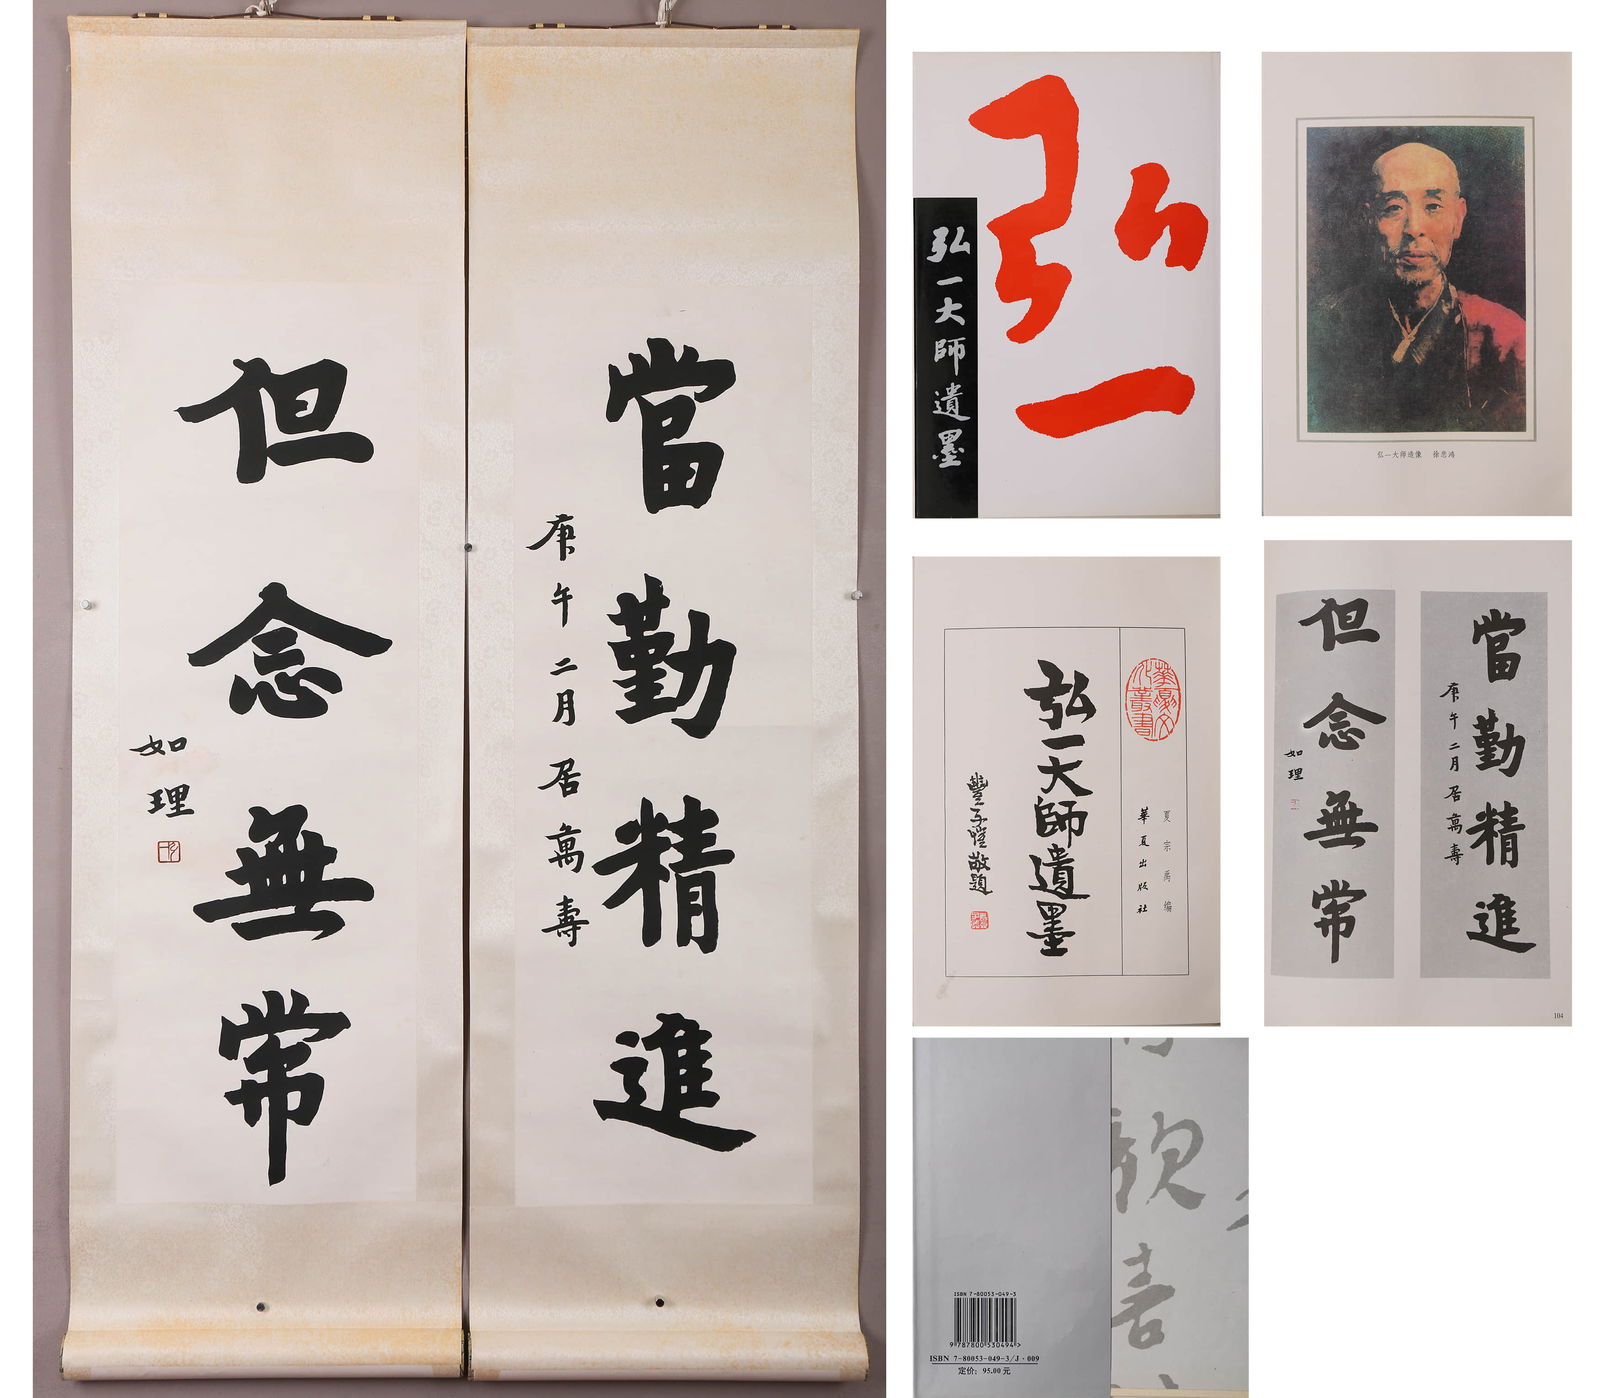 當勤精進
庚午二月居萬壽
但念無常
如理
弘一
弘一大師遺墨
弘一大师造像 徐悲鸿
夏宗禹编
華夏出版社
弘一大師遺墨
豐子愷敬題
當勤精進
庚午二月居萬壽
但念無常
如理
104
ISBN 7-80053-049-3
9 787800 530494 >
ISBN 7-80053-049-3/J·009
定价：95.00元
觀
喜